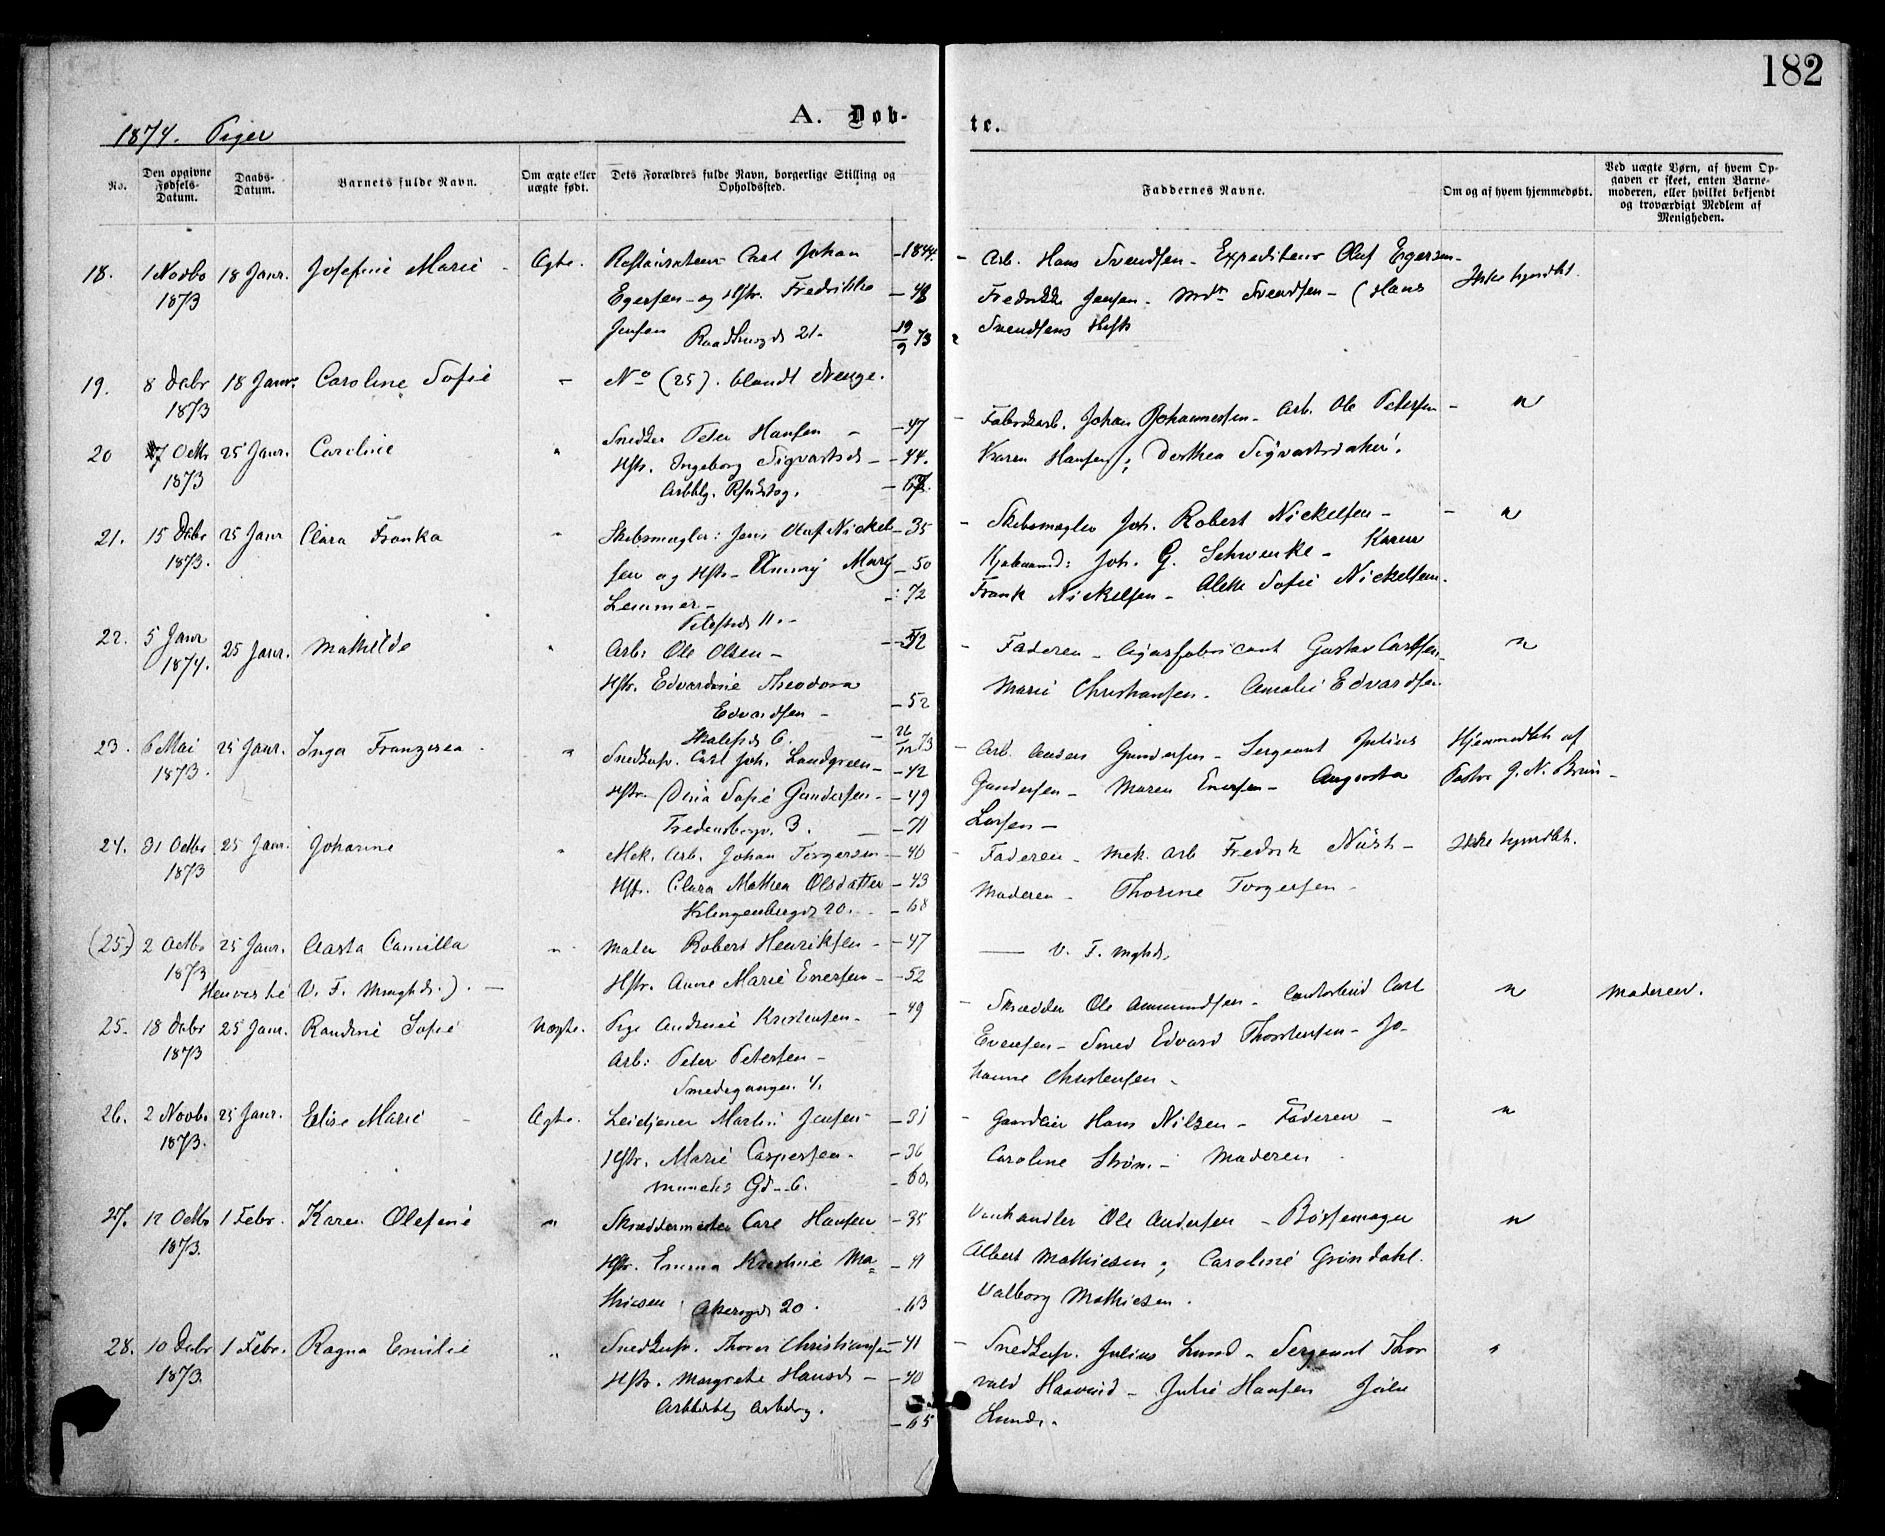 182
A. Døb- te.
1874. Piger
No.
Den opgivne Fødsels-Datum.
Daabs-Datum.
Barnets fulde Navn.
Om ægte eller uægte født.
Dets Forældres fulde Navn, borgerlige Stilling og Opholdssted.
Faddernes Navne.
Om og af hvem hjemmedøbt.
Ved uægte Børn, af hvem Opgaven er skeet, enten Barnemoderen, eller hvilket bekjendt og troværdigt Medlem af Menigheden.
18. 1 Novbr 18 Janr. Josefine Marie - Ægte. Restaurateur Carl Johan - 1844. - Arb. Hans Svendsen - Expeditør Oluf Egersen -
1873 Egersen - og Hstr. Fredrikke - 48 Fredrikke Jensen - Mdm Svendsen - (Hans Ikke hjmdbt.
Jensen Raadhusgd 21. 19/9 73 Svendsens Hstr
19. 8 Decbr 18 Janr. Caroline Sofie - No (25). blandt Drenge.
1873
20 7 Octbr 25 Janr. Caroline " Snedker Peter Hansen - - 47 - Fabrikarb. Johan Johannessen - Arb. Ole Petersen - "
1873 Hstr. Ingeborg Sigvartsd - - 44. Karen Hansen; Dorthea Sigvartsdater.
Arbblg.
21. 15 Decbr 25 Janr Clara Franka " Skibsmægler: Jens Oluf Nickel - 35 - Skibsmægler Joh. Robert Nickelsen - - "
1873. sen og Hstr - Mary - 50 Kjøbmand: Joh. G. Schwenke - Karen
Lemmer - - 72 Frank Nickelsen - Alette Sofie Nickelsen.
11. -
22. 5 Janr 25 Janr. Mathilde " Arb. Ole Olsen - - 52 - Faderen - Cigarfabricant Gustav Carlsen - "
1874. Hstr. Edvardine Theodora Marie Christiansen - Amalie Edvardsen
Edvardsen - - 52
6. - 26/12 73
23. 6 Mai 25 Janr. Inga Franzisca - " Snedksv. Carl Joh. Landgreen - - 42 - Arb. Anders Gundersen - Sergeant Julius Hjemmedbt af
1873. Hstr. Dina Sofie Gundersen - - 49 Gundersen - Maren Enersen - Augusta Pastor J. N. Brun -
Fredensborgv. 3. - 71 Larsen -
24. 31 Octbr 25 Janr. Johanne " Mek. Arb. Johan Torgersen - 40 - Faderen - Mek. Arb Fredrik - Ikke hjmdbt.
1873 Hstr. Clara Mathea Olsdatter - 43 Moderen - Thorine Torgersen -
Klingenbergd 20. - 68
(25.) 2 Octbr 25 Janr. Aasta Camilla " Maler Robert Henriksen - - 47 — V. F. mghd.
1873 Hstr. Anne Marie Enersen - - 52
Henvist V. F. Mnghd.). -
25. 18 Decbr 25 Janr. Randine Sofie Uægte. Pige Andrine Kristensen - - 49 - Skrædder Ole Ammundsen - Carl " Moderen.
1873 Arb: Peter Petersen - Evensen - Smed Edvard Thorstensen - Jo-
Smedegangen 4. hanne Christensen -
26. 2 Novbr 25 Janr. Elise Marie - Ægte. Martin Jensen - - 31 - Hans Nilsen - Faderen - "
1873. Hstr. Marie Caspersen - - 36 Caroline Strøm - Moderen
Munkeds Gd - 6. - 60.
27. 12 Octbr 1 Febr. Karen Olefine " Skræddermester Carl Hansen - 35 Ole Andersen - Børstemager "
1873. Hstr. Emma Kristine Ma= - 41 Albert Mathiesen; Caroline Grøndahl.
thiesen Akersgd 20. - 63 Valborg Mathiesen.
28. 10 Decbr 1 Febr. Ragna Emilie " Snedksv. Thorer Christiansen - 41 - Snedksv. Julius Lund - Sergeant Thor "
1873. Hstr. Margrethe Hansd - - 40 vald - Julie Hansen Julie
- 65 Lund.